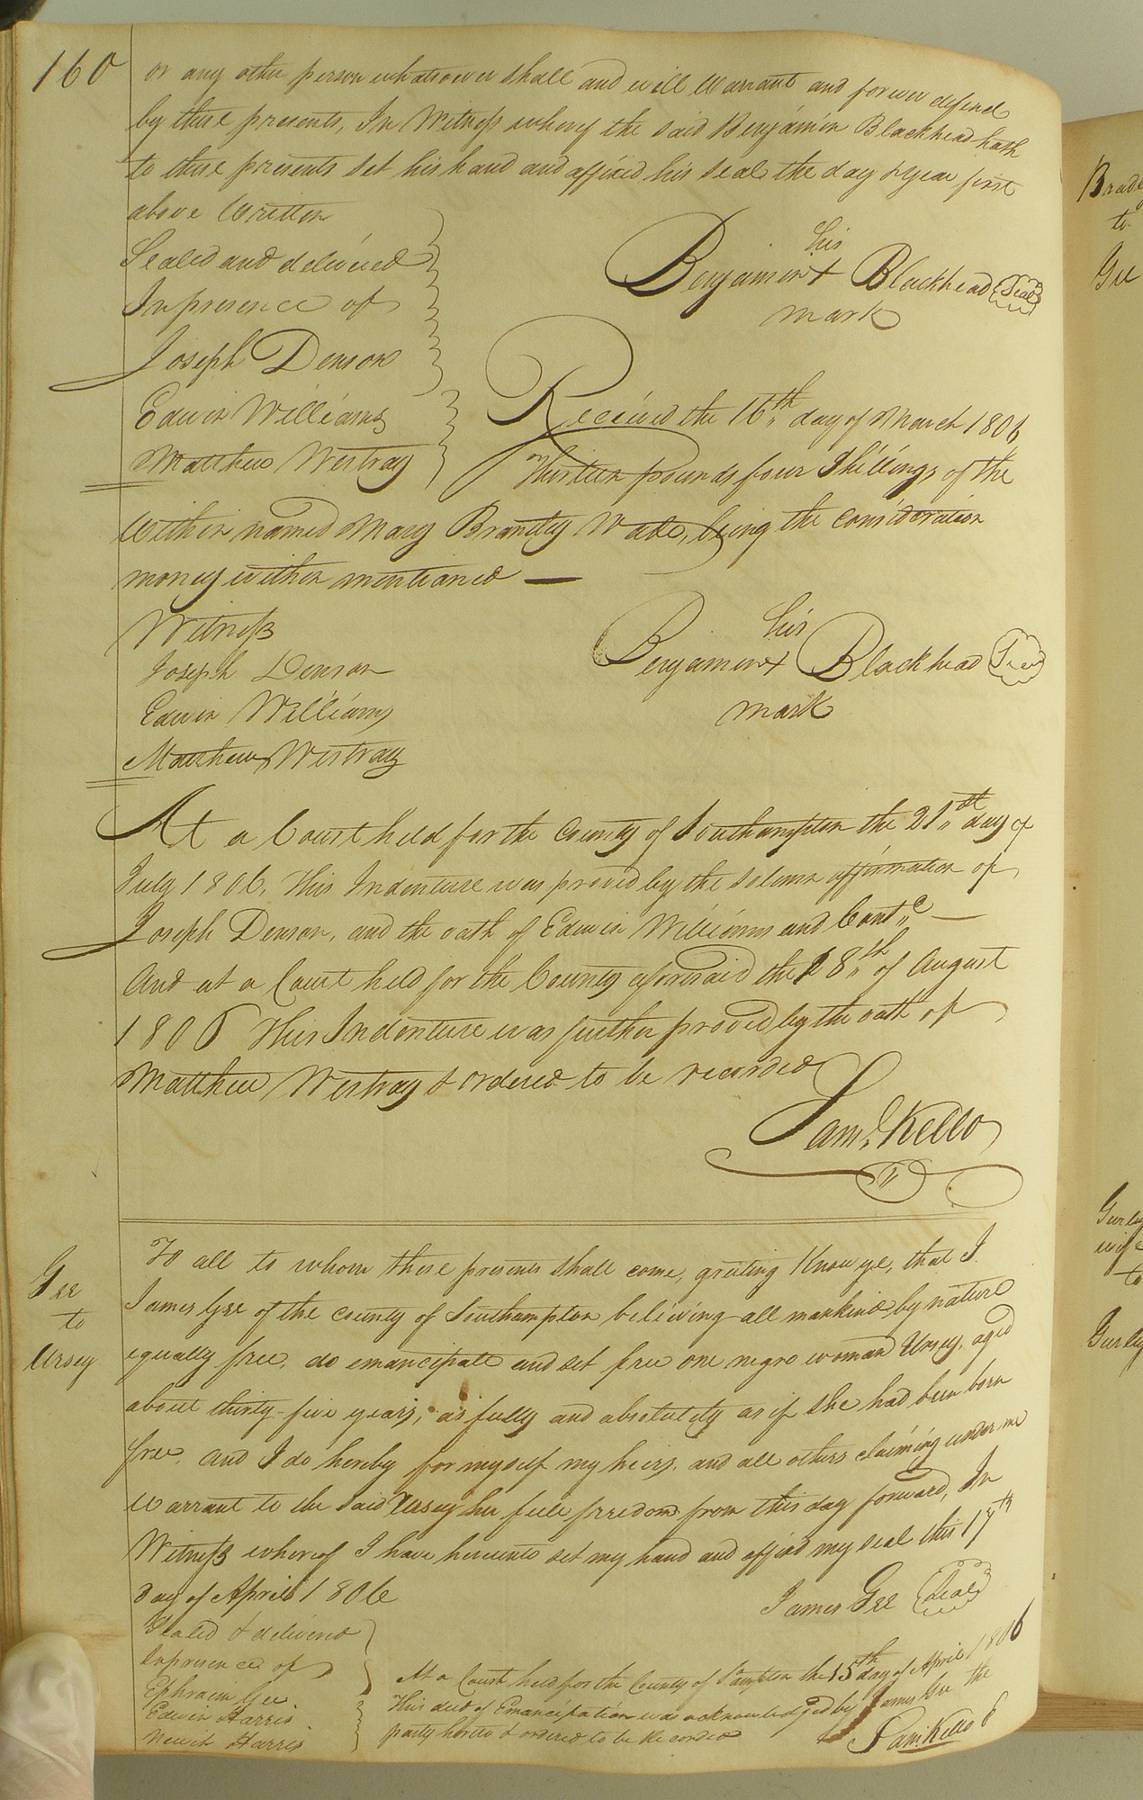 160
or any other person whatsoever shall and will warrant and forever defend
by these presents, In Witness whereof the said Benjamin Blackhead hath
to these presents set his hand and affixed his seal the day & year first
above Written
Sealed and delivered
In presence of
Joseph Denson
Edwin Williams
Matthew Westray
his
Benjamin + Blackhead Seal
mark
Received the 16th day of March 1806
Thirteen pounds four Shillings of the
within named Mary Brantly Wade, being the consideration
money within mentioned —
Witness
Joseph Denson
Edwin Williams
Matthew Westray
his
Benjamin + Blackhead Seal
mark
At a Court held for the County of Southampton the 21st day of
July 1806. This Indenture was proved by the solemn affirmation of
Joseph Denson, and the oath of Edwin Williams and Contd —
And at a Court held for the County aforesaid the 18th of August
1806 This Indenture was further proved by the oath of
Matthew Westray & ordered to be recorded
Saml. Kello
Gee
to
Ursey
To all to whom these presents shall come, greeting Know ye, that I
James Gee of the county of Southampton believing all mankind by nature
equally free, do emancipate and set free one negro woman Ursey, aged
about thirty-five years, as fully and absolutely as if she had been born
free. and I do hereby for myself my heirs, and all others claiming under me
warrant to the said Ursey her full freedom from this day forward, In
Witness whereof I have hereunto set my hand and affixed my seal this 17th
day of April 1806
James Gee Seal
Sealed & delivered
In presence of
Ephraim Gee
Edwin Harris
Newit Harris
At a Court held for the County of Sampton the 15th day of April 1806
This deed of Emancipation was acknowledged by James Gee the
party hereto & ordered to be Recorded
Saml. Kello
to
Gee
wife
to
Gurley